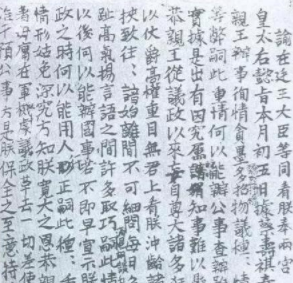 諭在廷王大臣等同看朕奉兩宮
皇太后懿旨本月初五日據蔡壽祺奏
親王辦事徇情貪墨多招物議種種情
等弊嗣此重情何以能辦公事查辦雖
實據是出有因究屬知事難以懸
恭親王從議政以來妄自尊大諸多
以仗爵高權重目無君上看朕沖齡諸
挾致往往諳始離間不可細問每日
趾高氣揚言語之間許多取巧嗣此情
以後何以能辦國事若不即早宣示朕
政之時何以能用人行正嗣此種種
情形姑免深究方知朕寬大之恩恭親
著毋庸在軍機處議政革去一切差使
准干預公事方是朕保全之至意特